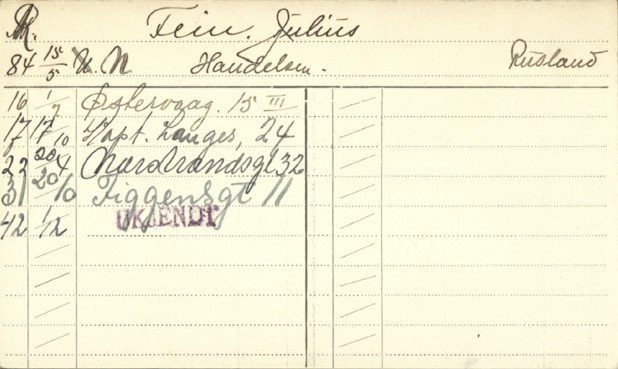 R. Fein. Julius
84 15/5 U. N Handelsm. Rusland
16 1/7 Østervaag. 15 III
17 17/10 Kapt. Langes, 24
22 20/4 Nordrandsgt 32
31 20/10 Figgensgt 11
42 1/12 UKJENDT